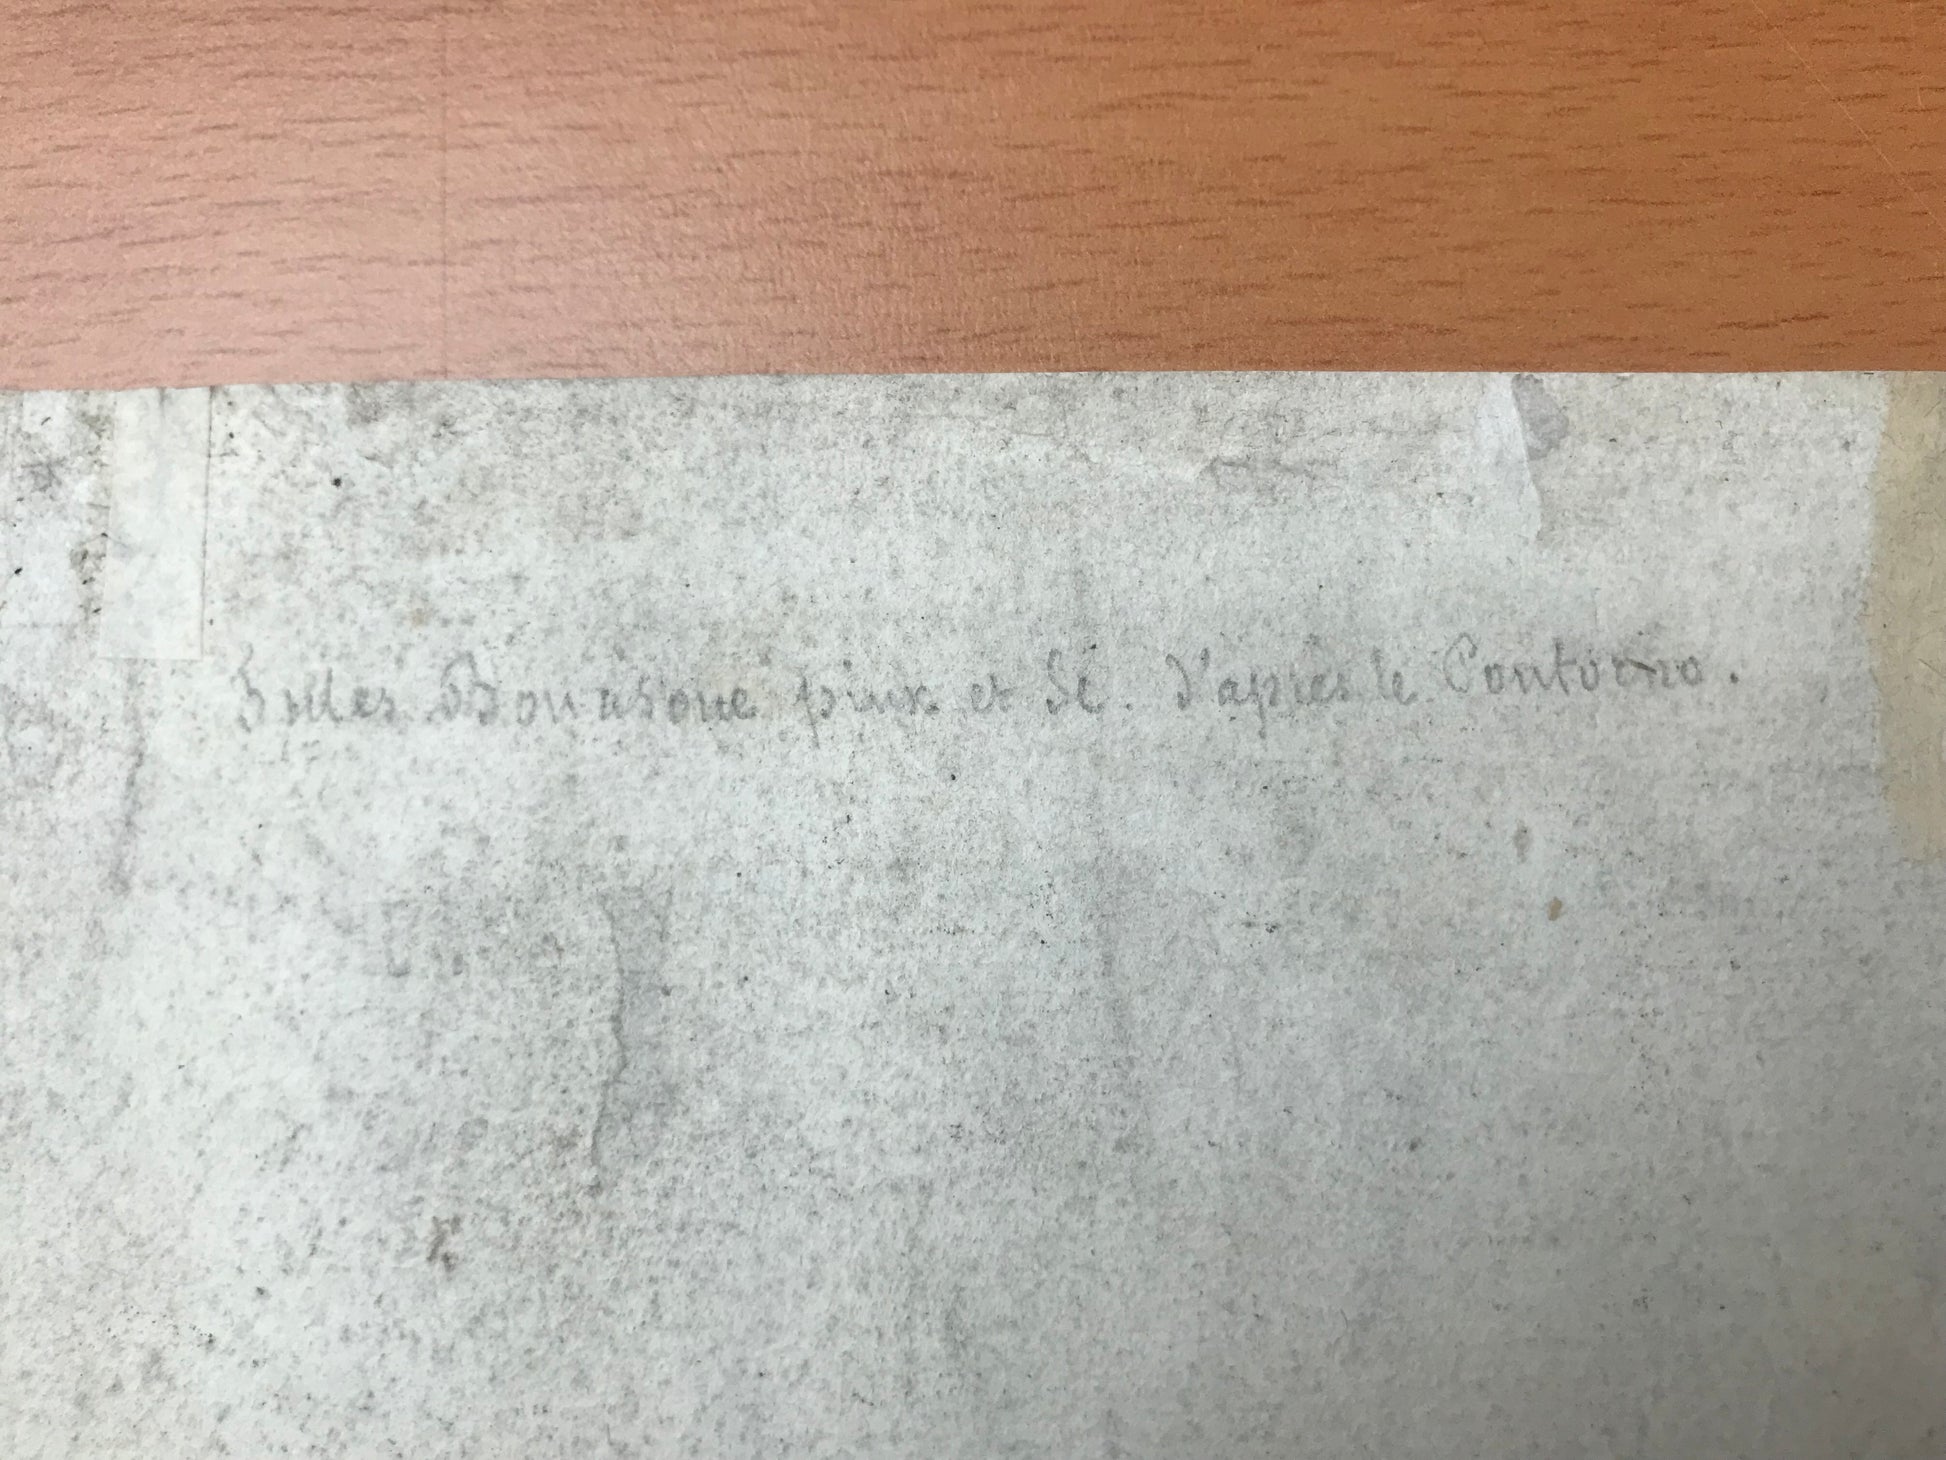 Jules Bonasone pinx et Sc. d'après le Pontormo.